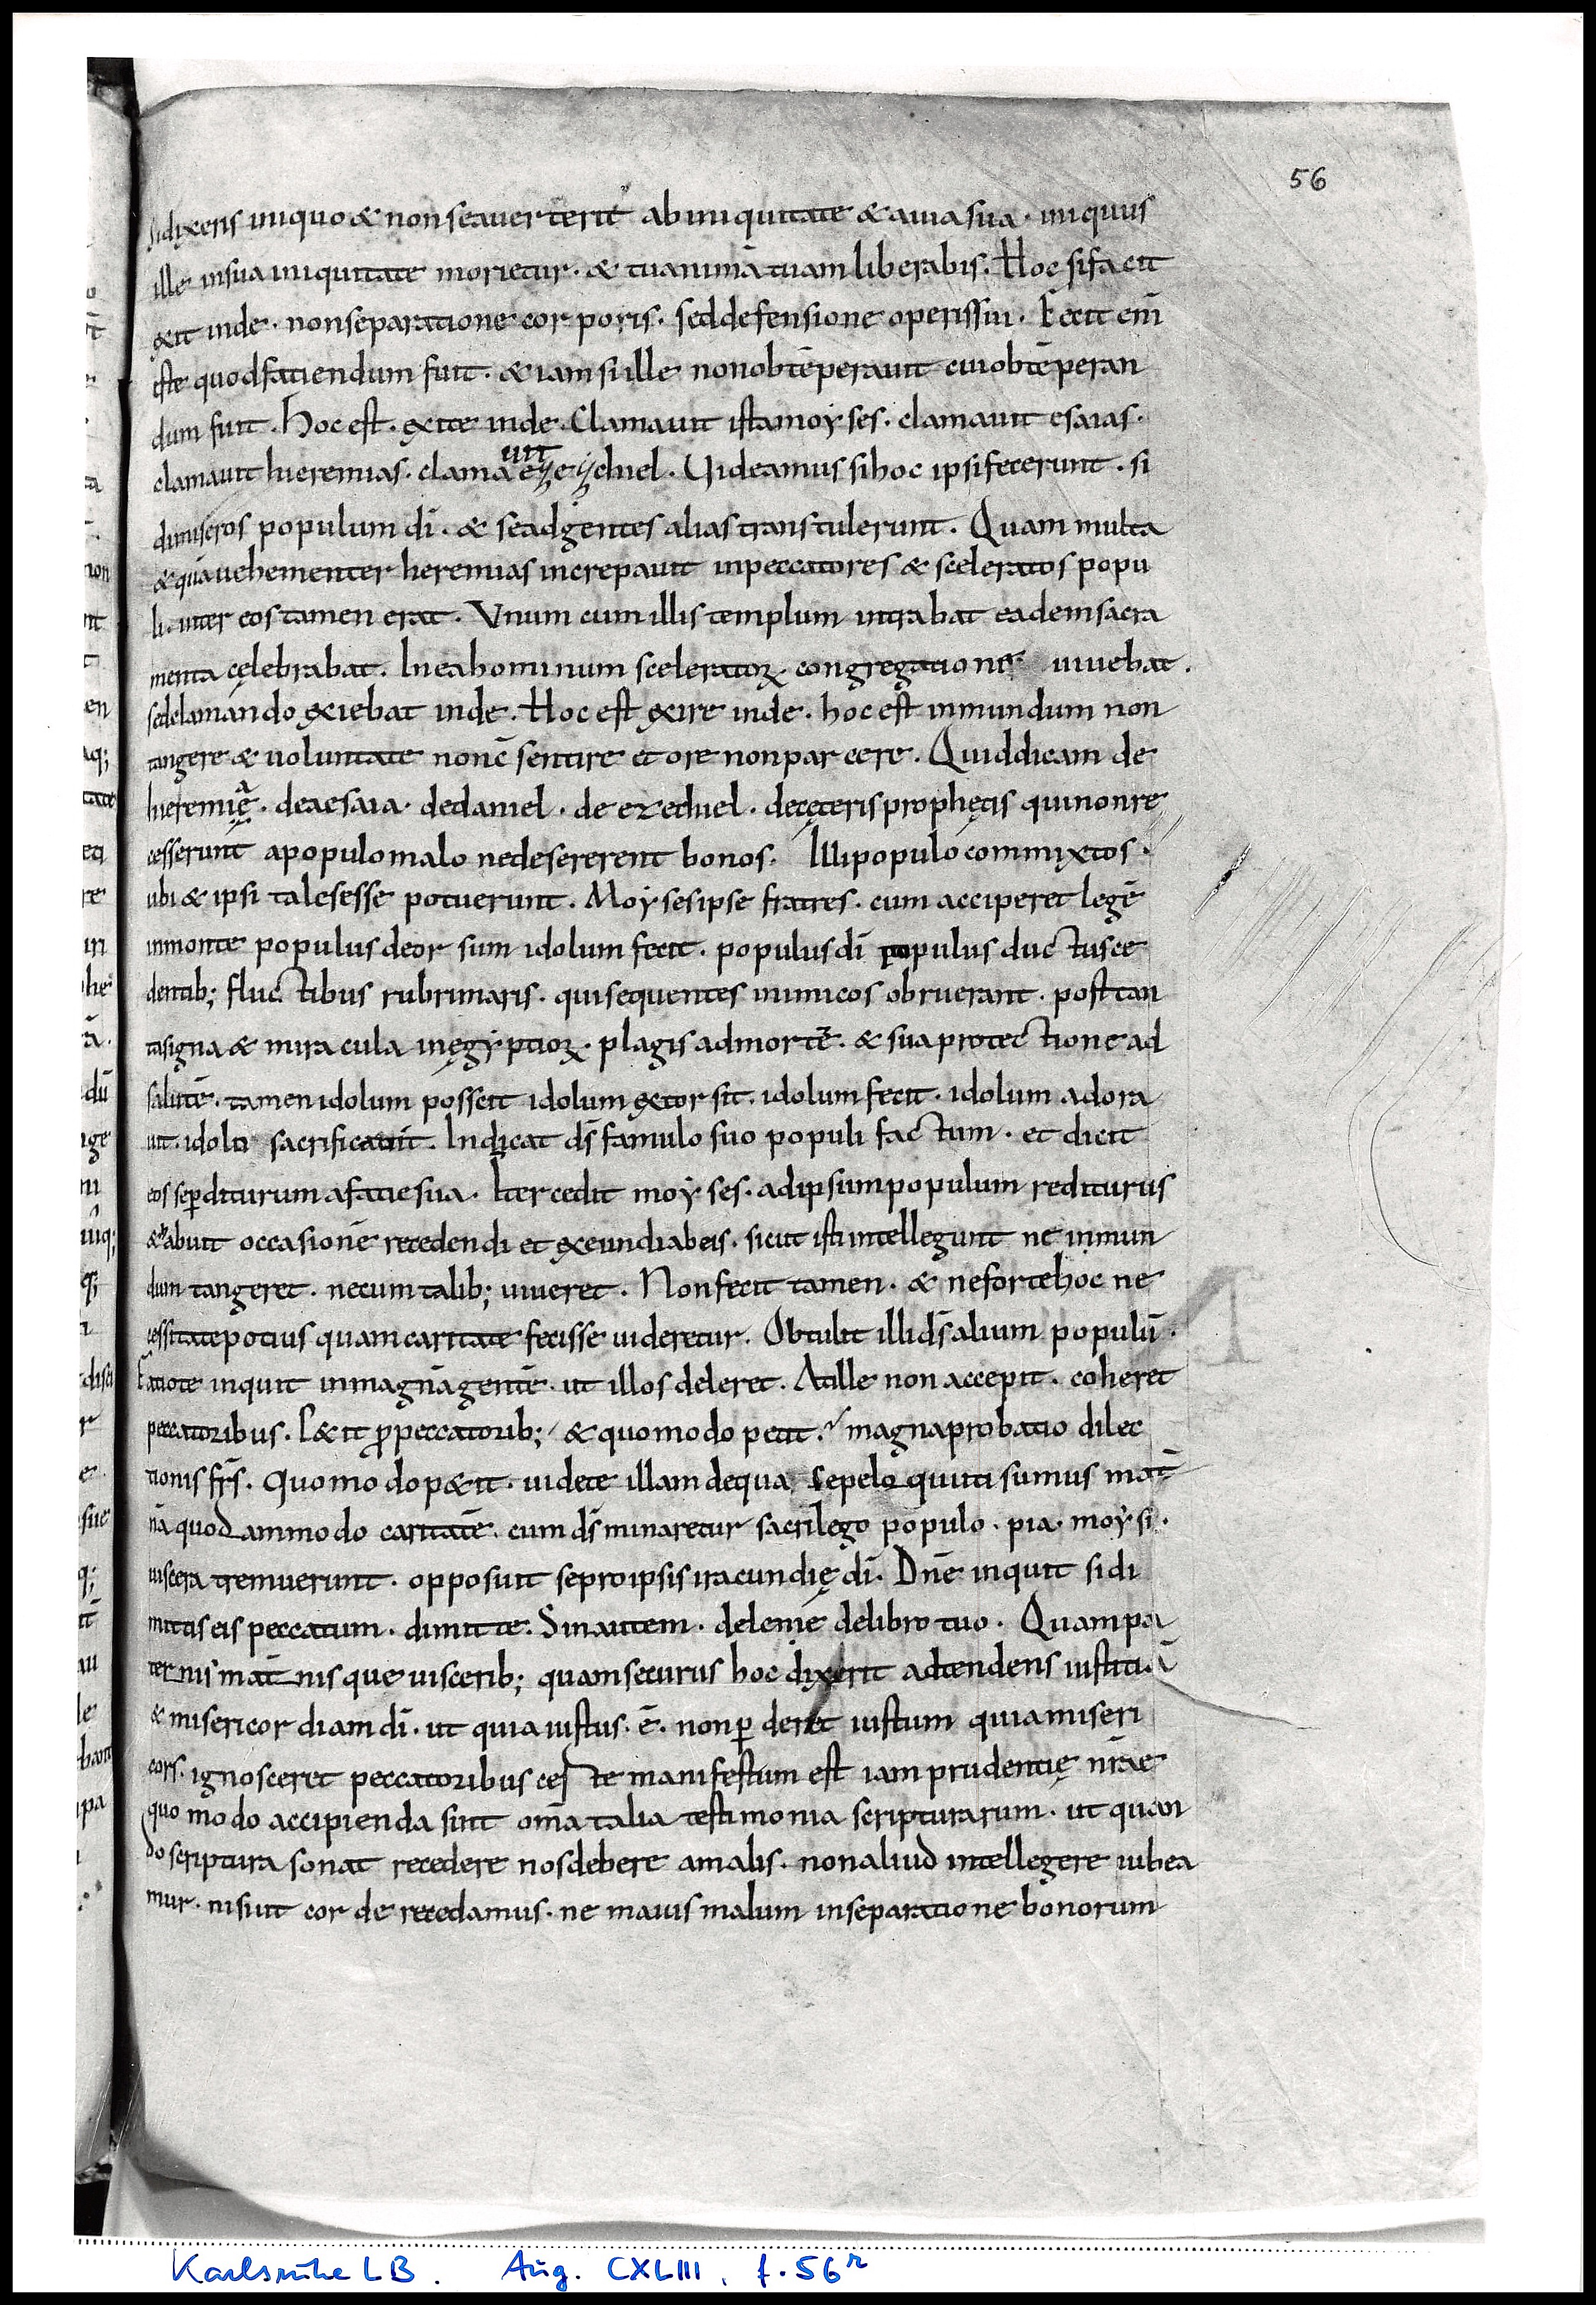 56
Sidixeris iniquo & nonseauerterit abiniquitate & auiasua · iniquus
ille insua iniquitate morietur · & tuanimā tuam liberabis. Hoc sifacit
exit inde · nonseparatione corporis · seddefensione operissui · Fecit eni͞
iste quodfaciendum fuit · & iam siille nonobtēperauit cuiobtēperan
dum fuit · hoc est · exite inde · Clamauit istamoyses · clamauit esaias ·
clamauit hieremias · clamauit ezechiel · Uideamus sihoc ipsifecerunt · si
dimiseros populum dī · & seadgentes alias transtulerunt · Quam multa
& quā uehementer heremias increpauit inpeccatores & sceleratos popu
li · inter eos tamen erat · Vnum cum illis templum intrabat eademsacra
menta cęlebrabat. Ineahominum sceleratoꝝ congregatione uiuebat.
sedclamando exiebat inde. Hoc est exire inde · hoc est inmundum non
tangere & uoluntate nonc̄sentire et ore nonparcere. Quiddicam de
hieremię · deaesaia · dedaniel · de ezechiel · decęterisprophętis quinonre
cesserunt apopulomalo nedesererent bonos. Illipopulocommixtos ·
ubi & ipsi talesesse potuerunt. Moysesipse fratres · cum acciperet legē
inmonte populus deorsum idolum fecit · populus dī populus ductusce
dentib; fluctibus rubrimaris · quisequentes inimicos obruerant · posttan
tasigna & miracula inęgyptioꝝ · plagis admortē · & suaprotectione ad
salutē · tamen idolum posscit idolum extorsit · idolum fecit · idolum adora
uit · idolu sacrificauit. Indicat d̄s famulo suo populi factum · et dicit
eos seꝑditurum afaciesua · Itercedit moyses · adipsumpopulum rediturus
&habuit occasionē recedendi et exeundiabeis · sicut istiintellegunt ne inmun
dum tangeret · necumtalib; uiueret · Nonfecit tamen · & nefortehoc ne
cessitatepotius quamcaritate fecisse uideretur. Obtulit illid̄s alium populū ·
Faciote inquit inmagnāgentē · ut illos deleret. Atille non accepit · coheret
peccatoribus. P&it ꝓpeccatorib; & quomodo petit · magnaprobatio dilec
tionis fr̄s. Quomodop&it · uidete illam dequa sepeloquuti sumus mat̄
nā quodammodo caritatē · cum d̄s minaretur sacrilego populo · pia · moysi ·
uiscera tremuerunt · opposuit seproipsis iracundię dī. Dn̄e inquit sidi
mittis eis peccatum · dimitte. Sinautem · deleme delibro tuo · Quampa
ternis mat̄nisque uiscerib; quamsecurus hoc dixerit adtendens iustitiā
& misericordiam dī · ut quia iustus · ē · nonꝑderet iustum quiamiseri
cors · ignosceret peccatoribus certe manifestum est iam prudentię n̄rae
quomodo accipienda sint om̄a talia testimonia scripturarum · ut quan
do scriptura sonat recedere nosdebere amalis · nonaliud intellegere iubea
mur · nisiut corde recedamus · ne maius malum inseparatione bonorum
Karlsruhe LB. Aug. CXLIII, f. 56r